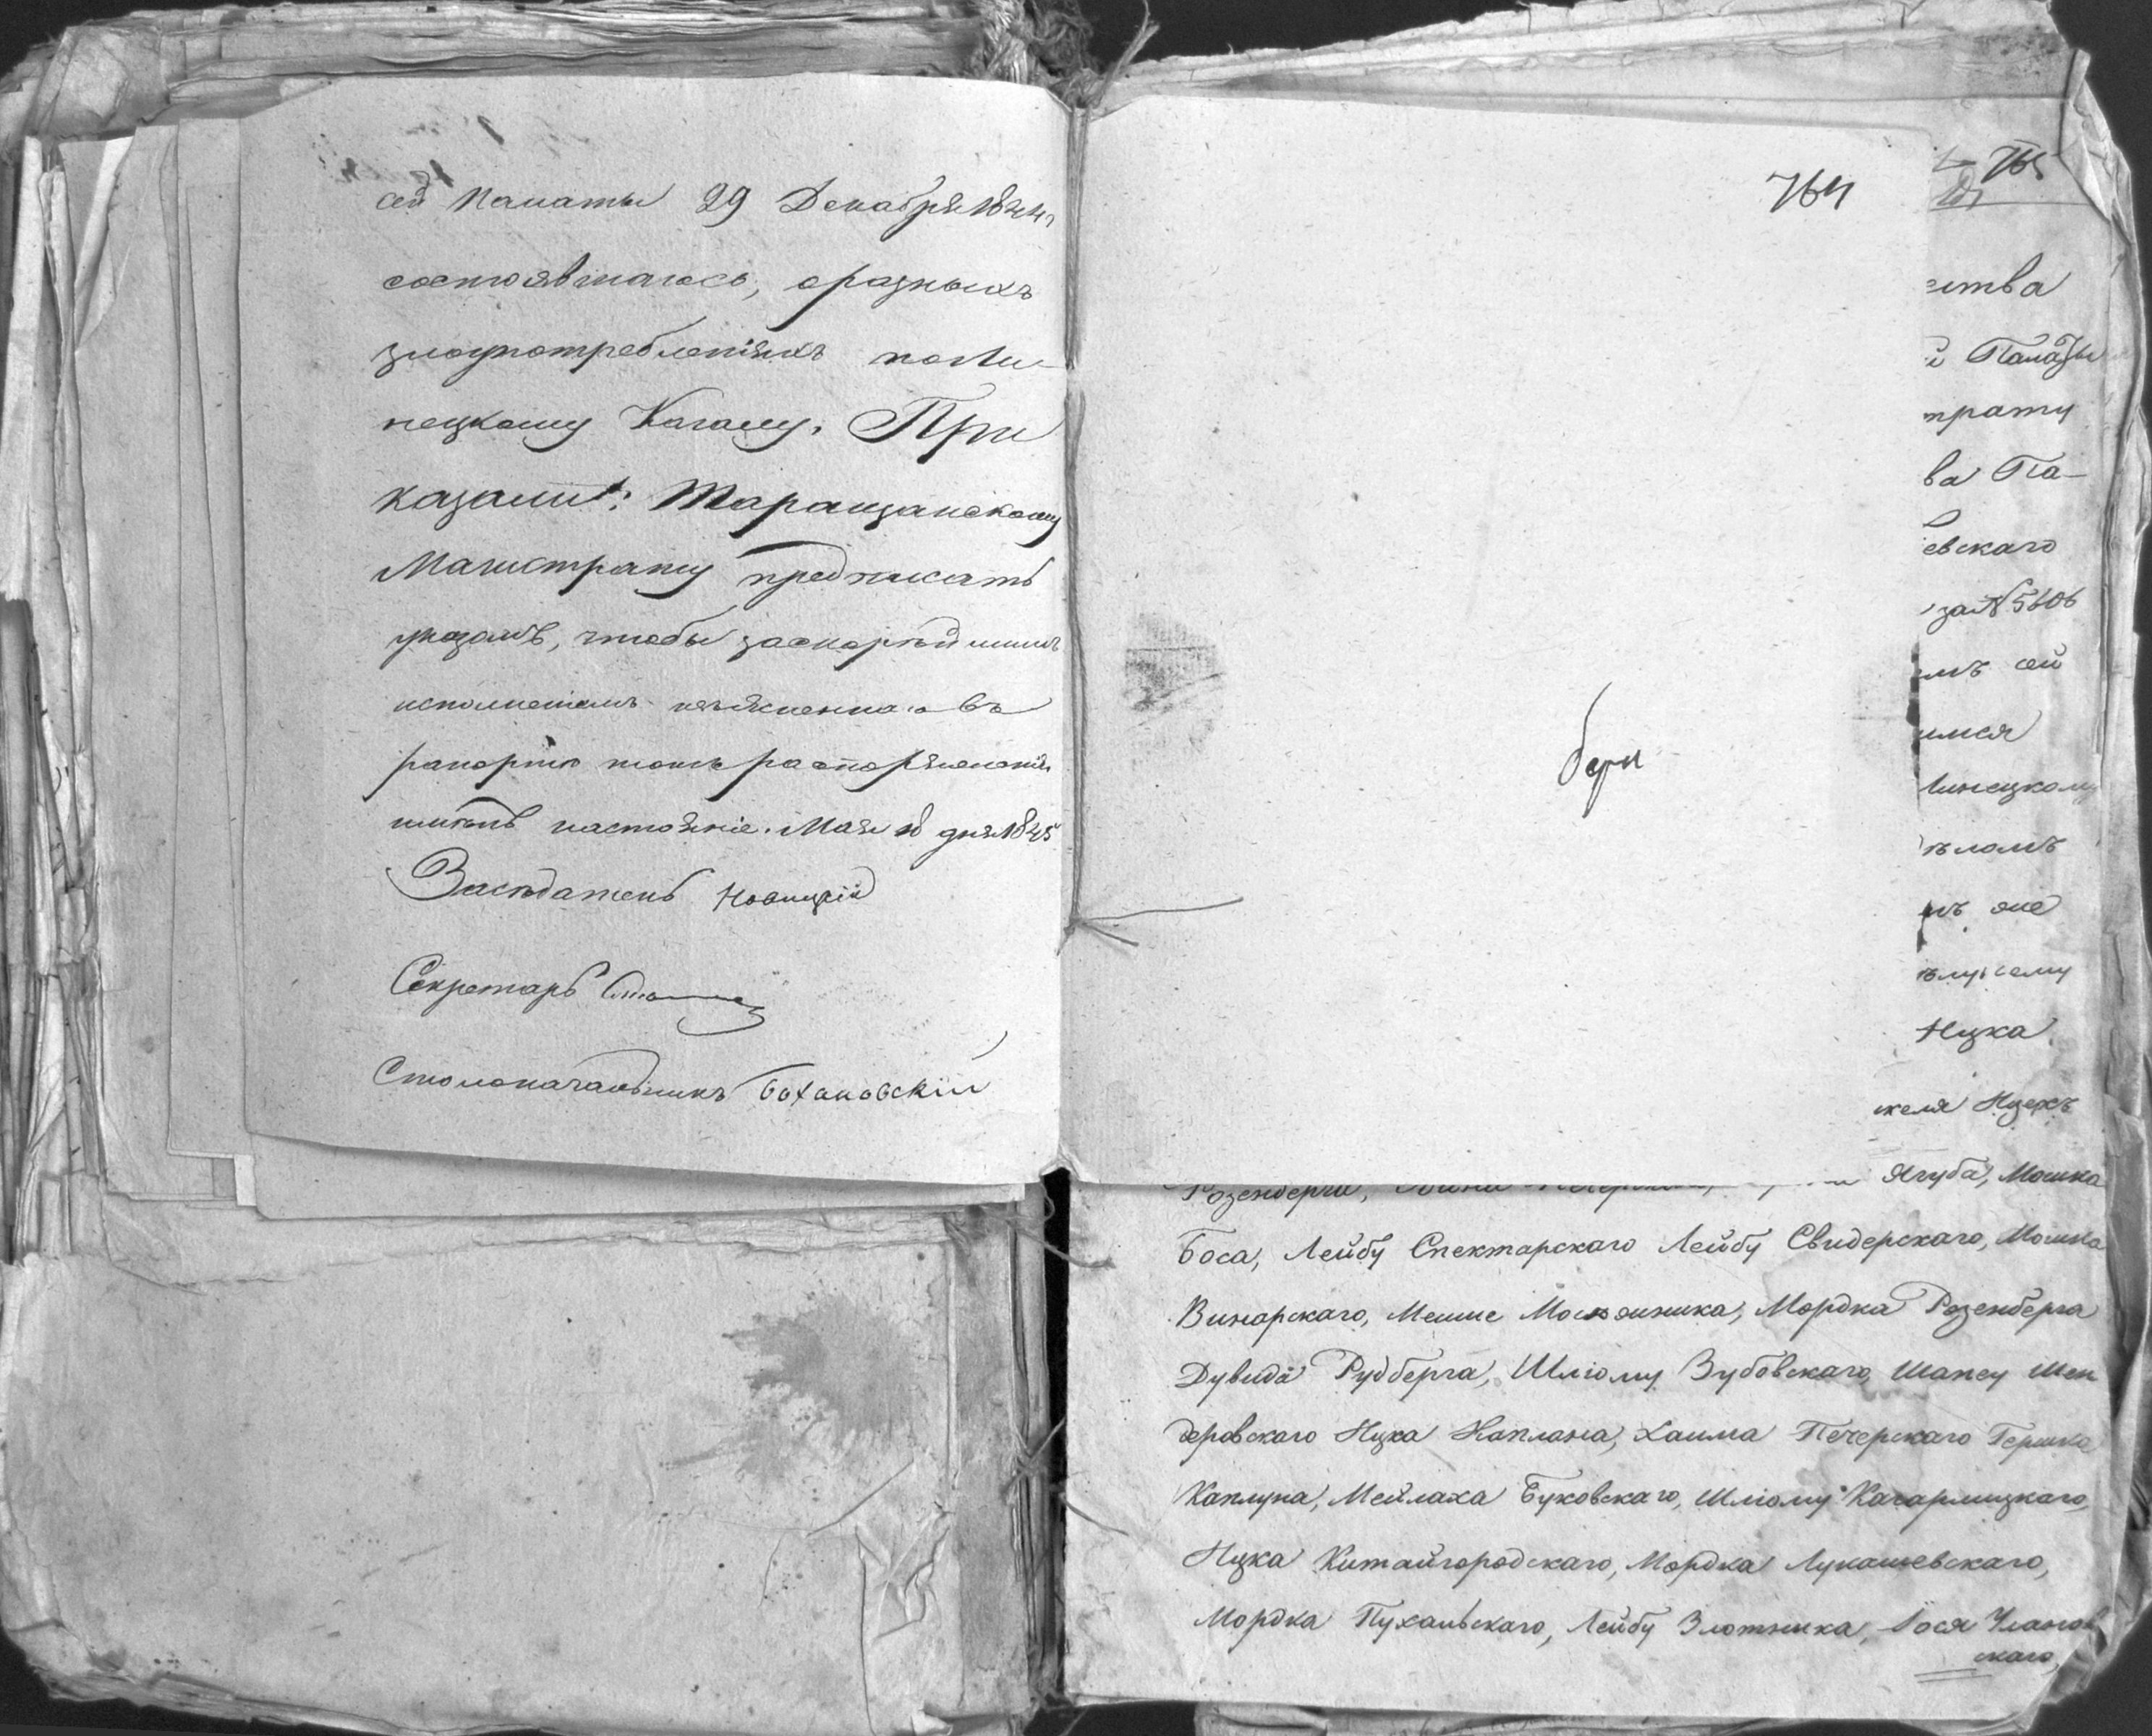 сей Палаты 29 Декабря 1844 г.
состоявшагося, о разныхъ
злоупотребленіяхъ по Ли-
нецкому Кагалу. При
казали: Таращанскому
Магистрату предписать
указомъ, чтобы за скорѣйшимъ
исполненіемъ изъясненнаго въ
рапортѣ томъ распоряженія
имѣлъ настояніе. Мая 18 дня 1845
Засѣдатель Новицкій
Секретарь
Столоначальникъ Бохановскій
764
765
ства
й Палаты
трату
ва Па-
евскаго
за № 5606
мъ сей
имся
Линецкому
ѣломъ
мъ же
ѣлу сему
Ицка
келя Ицехъ
Розенберга, Ягуба, Мошка
Боса, Лейбу Спектарскаго Лейбу Свидерскаго, Мошка
Винарскаго, Мешие Мосяжника, Мордка Розенберга
Дувида Рудберга, Шліому Зубовскаго, Шапсу Шен
деровскаго Ицка Каплана, Хаима Печерскаго Гершка
Каплуна, Мейлаха Буковскаго, Шліому Кагарлицкаго,
Ицка Китайгородскаго, Мордка Лукашевскаго,
Мордка Пухальскаго, Лейбу Злотника, Іося Уланов
скаго,